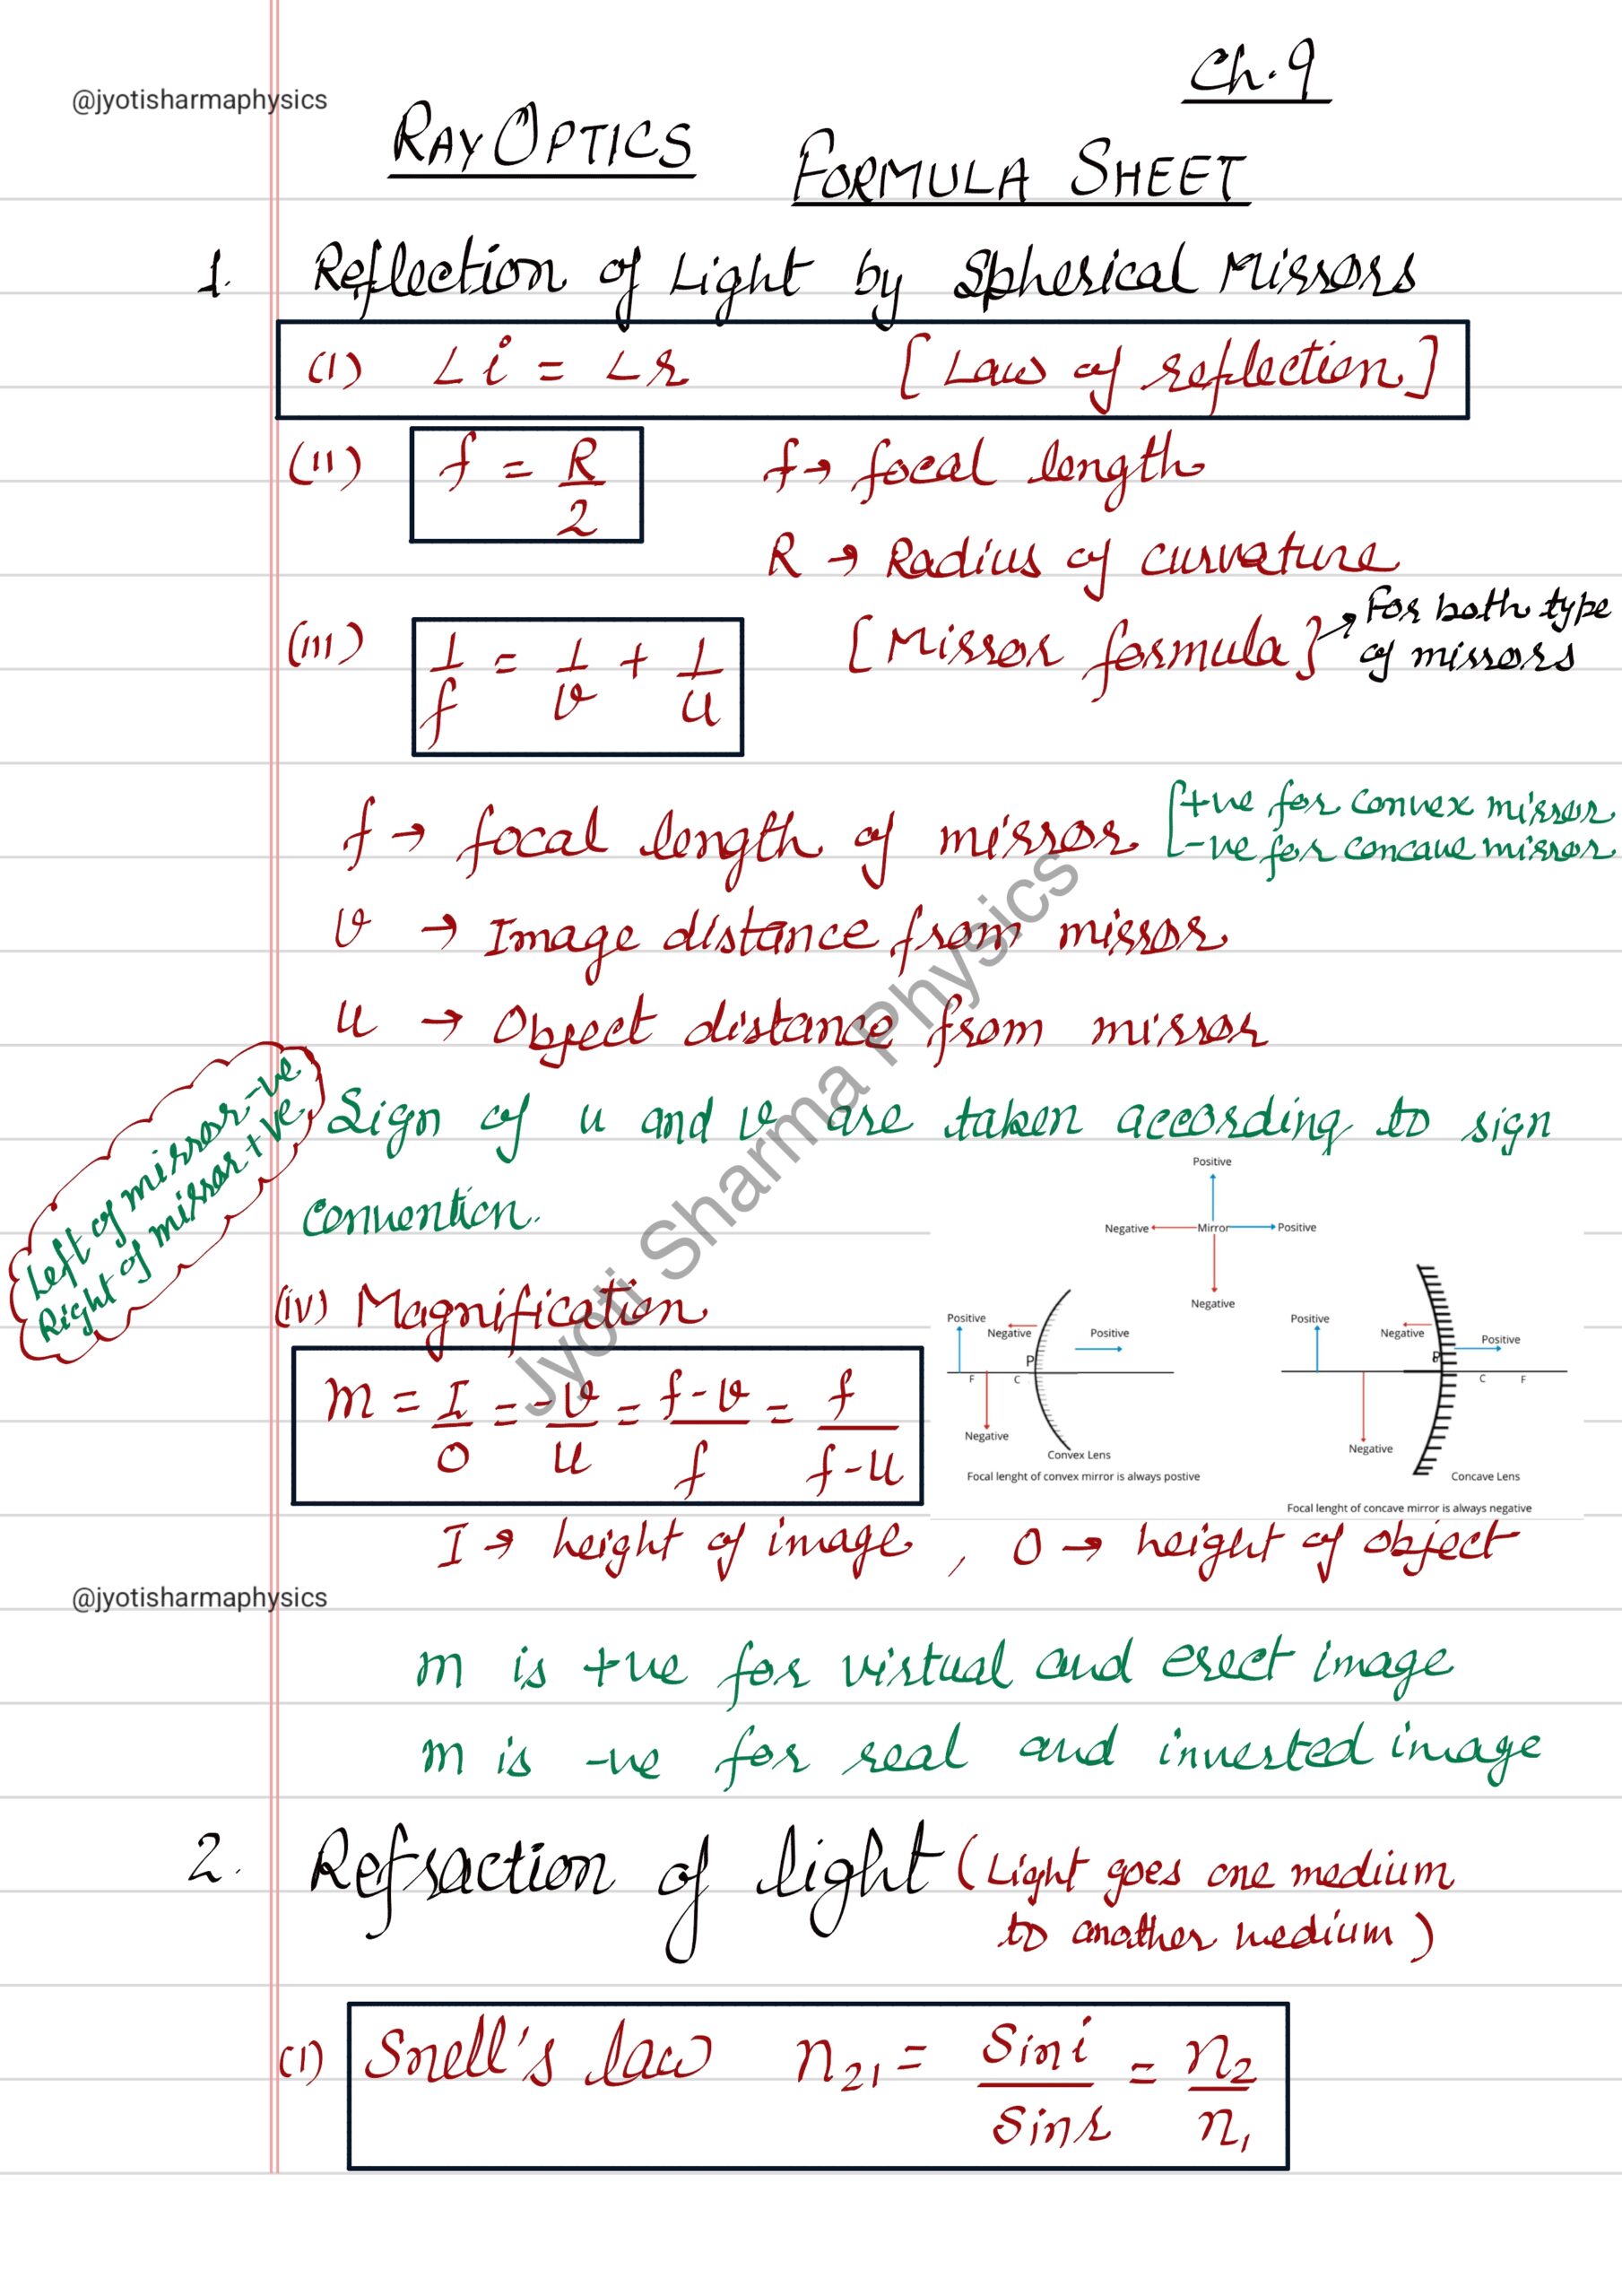 Ch.9
@jyotisharmaphysics
RAY OPTICS FORMULA SHEET
1. Reflection of Light by Spherical Mirrors
(I) ∠i = ∠r [Law of reflection]
(II) f = R/2 f → focal length
R → Radius of curvature
(III) 1/f = 1/v + 1/u [Mirror formula] → For both type
of mirrors
f → focal length of mirror [+ve for convex mirror
-ve for concave mirror
v → Image distance from mirror
u → Object distance from mirror
Left of mirror -ve
Right of mirror +ve
Sign of u and v are taken according to sign
convention.
Positive
Negative Mirror Positive
Negative
(iv) Magnification
m = I/O = -v/u = f-v/f = f/f-u
Positive
Negative
Positive
P
F C
Negative
Convex Lens
Focal lenght of convex mirror is always postive
Positive
Negative
Positive
P
C F
Negative
Concave Lens
Focal lenght of concave mirror is always negative
I → height of image , O → height of object
@jyotisharmaphysics
m is +ve for virtual and erect image
m is -ve for real and inverted image
2. Refraction of light (Light goes one medium
to another medium)
(I) Snell's law n21 = Sin i/Sin r = n2/n1
Jyoti Sharma Physics